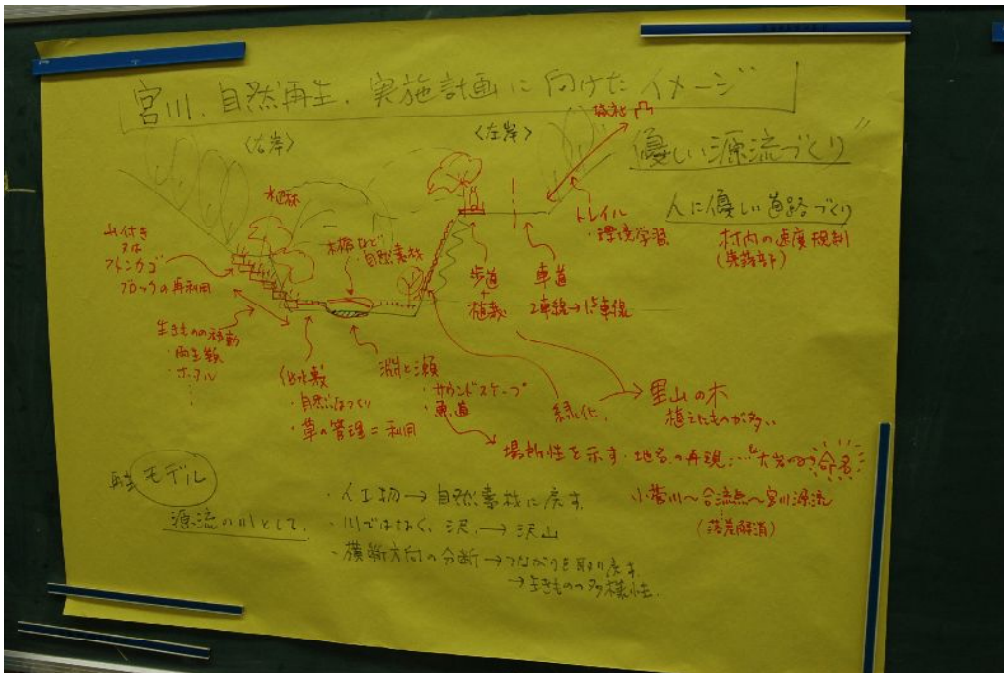 宮川.自然再生.実施計画に向けたイメージ
〈右岸〉
〈左岸〉
優しい源流づくり"
人に優しい道路づくり
村内の速度規制
トレイル
・環境学習
木組など
・自然素材
山付き
又は
フトンカゴ
ブロックの再利用
歩道
+
植栽
車道
2車線→1.5車線
生きものの移動
・両生類
・ホタル
低水敷
・自然にほづくり
・草の管理=利用
淵と瀬
・サウンドスケープ
・魚道
緑化.
里山の木
植えたものが多い
場所性を示す・地名の再現…
命名
小菅川〜合流点〜宮川源流
(落差解消)
モデル
源流の川として.
・人工物→自然素材に戻す.
・川ではなく、沢.→沢山
・横断方向の分断→つながりを取り戻す.
→生きものの多様性.